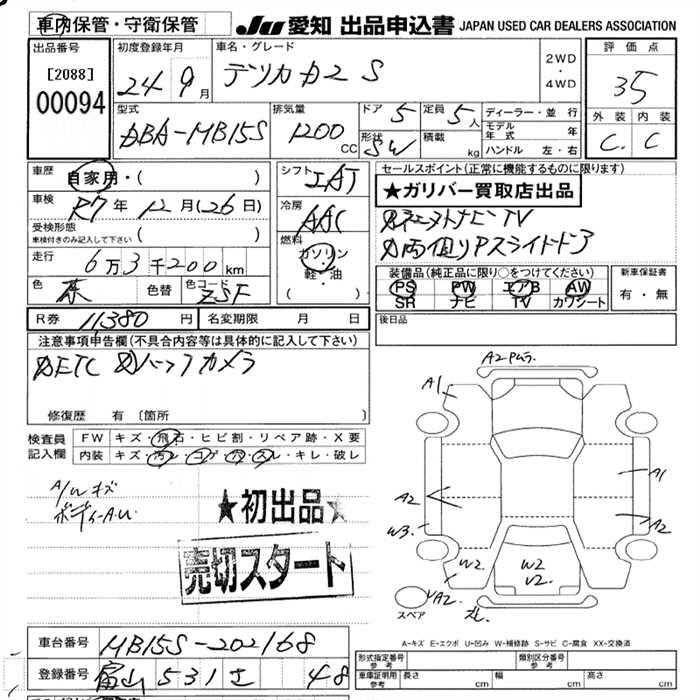 車内保管・守衛保管
JU 愛知 出品申込書 JAPAN USED CAR DEALERS ASSOCIATION
出品番号
[2088]
00094
初度登録年月
24 9月
車名・グレード
デリカD2 S
2WD
・
4WD
評価点
35
外装 内装
C. C
型式
DBA-MB15S
排気量
1200 CC
ドア 5
形状 SW
定員 5人
積載 kg
ディーラー・並 行
モデル年式 年
ハンドル 左・右
車歴
自家用・( )
車検
R7年 12月(26日)
受検形態
車検付きのみ記入して下さい ( )
走行
6万3千200km
色
茶
色替
色コード
ZSF
シフト
IAT
冷房
AAC
燃料
ガソリン
・
軽・油
( )
セールスポイント(正常に機能するものに限ります)
★ガリバー買取店出品
TV
装備品(純正品に限り○をつけてください)
PS PW エアB AW
SR ナビ TV カワシート
新車保証書
有・無
R券 11,380 円
名変期限 月 日
後日品
注意事項申告欄(不具合内容等は具体的に記入して下さい)
ETC バックカメラ
修復歴 有 〔箇所 〕
検査員
記入欄
FW キズ・飛石・ヒビ割・リペア跡・X要
内装 キズ・汚レ・コゲ・穴・スレ・キレ・破レ
A/W キズ
ボディA.U
★初出品★
売切スタート
A2
A1
A1
A2
A2
W3
W2
W2
V2.
A2
スペア
A-キズ E-エクボ U-凹み W-補修跡 S-サビ C-腐食 XX-交換済
車台番号
MB15S-202168
登録番号
富山 531 48
形式指定番号
参考
類別区分番号
参考
車庫証明用
参考
長さ cm
幅 cm
高さ cm